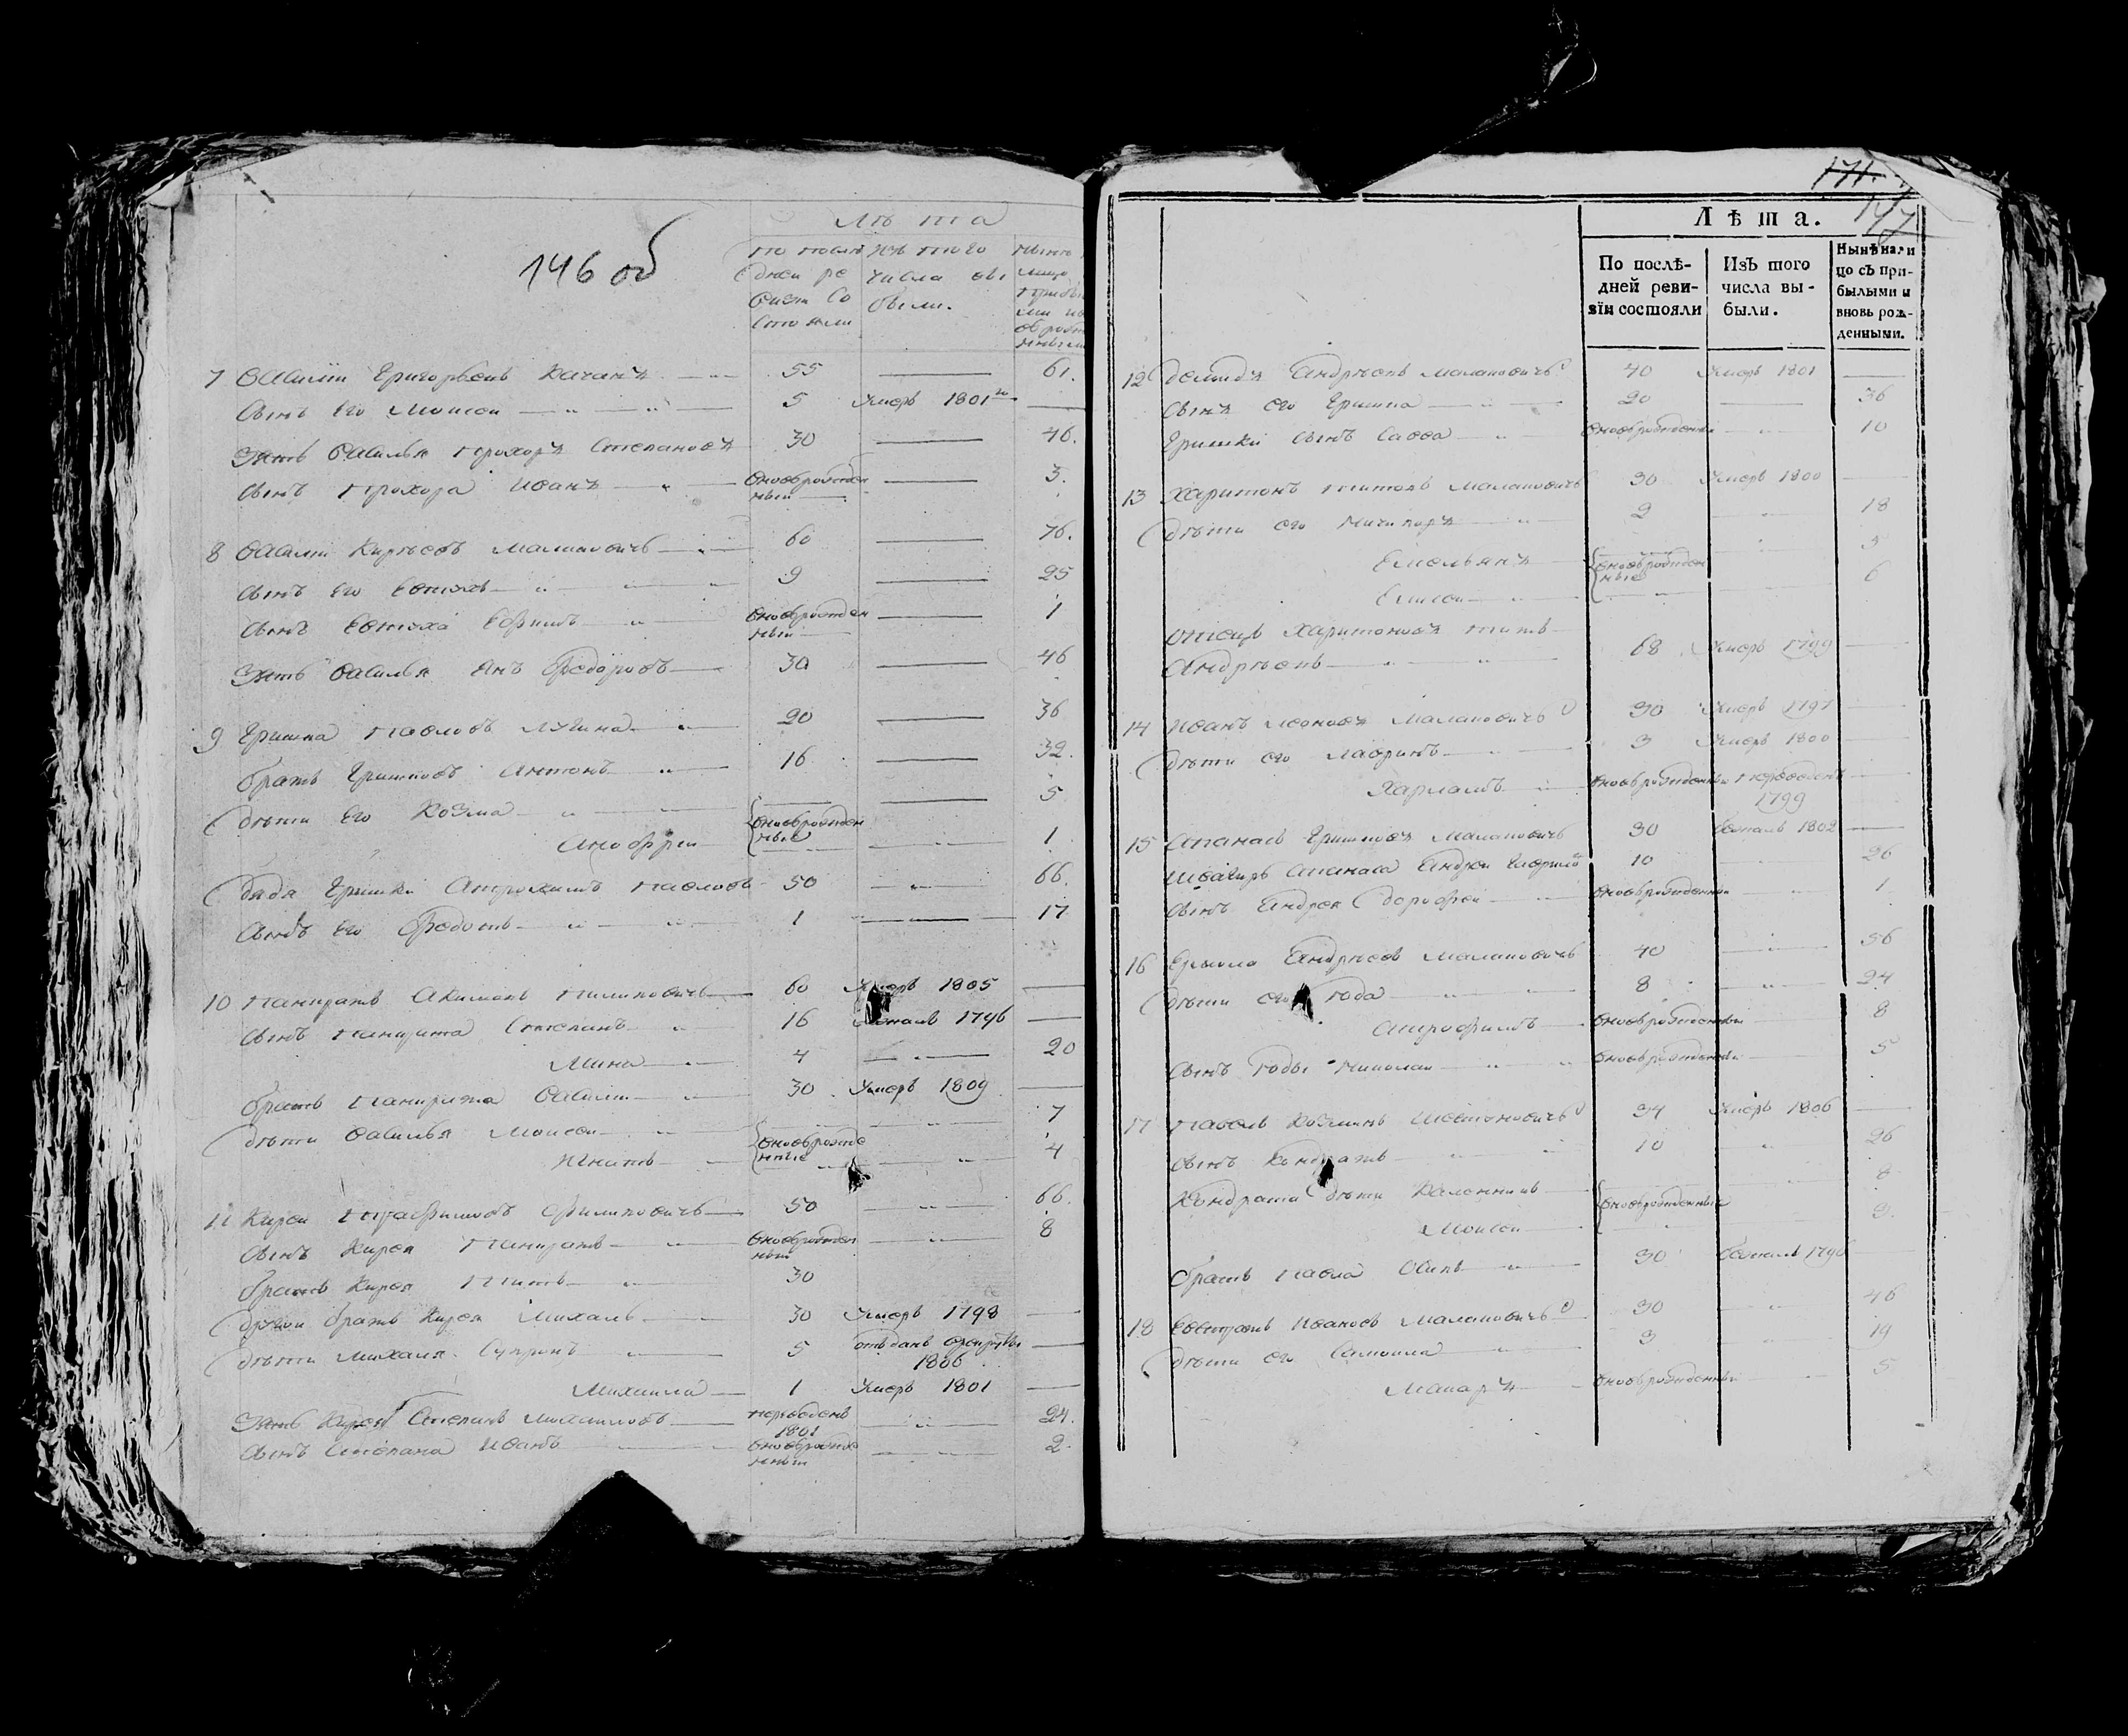 146 об
Лѣта
по послѣ изъ того нынѣ
дней ре числа вы лицо
визи со были.
стояли
7 Василий Григорьевъ Качанъ 55 61.
сынъ его Моисей 5 умеръ 1801го
зять Василья Прохоръ Степановъ 30 46.
сынъ Прохора Иванъ вновьрожден 3.
ный
8 Василий Кирѣевъ Малиновичъ 60 76.
сынъ его Евтихъ 9 25
сынъ Евтиха Ефримъ вновьрожден 1
ный
зять Василья Янъ Федоровъ 30 46
9 Гришка Павловъ Лучина 20 36
братъ Гришковъ Антонъ 16 32.
дѣти его Козма 5
вновьрожден
ные
Анофрей 1
дядя Гришки Атрохимъ Павловъ 50 66.
сынъ его Федотъ 1 17
10 Панкратъ Акимовъ Пилиповичъ 60 умеръ 1805
сынъ Панкрата Степанъ 16 бежалъ 1796
Мина 4 20
братъ Панкрата Василий 30 умеръ 1809
дѣти Василья Моисей 7
вновьрожде
ные
Игнатъ 4
11 Кирей Трафимовъ Филиповичъ 50 66.
сынъ Кирея Панкратъ вновьрожден 8
ный
братъ Кирея Титъ 30
другой братъ Кирея Михаль 30 умеръ 1798
дѣти Михаля Супронъ 5 отданъ
1806
Михаила 1 умеръ 1801
зять Кирея Степанъ Михаиловъ переведенъ 24.
1801
сынъ Степана Иванъ вновьрожде 2.
нный
171.
147
Лѣта.
По послѣ- Изъ того Нынѣ нали
дней реви- числа вы- цо съ при-
зіи состояли были. былыми и
вновь рож-
денными.
12 Демидъ Андрѣевъ Малановичъ 40 умеръ 1801
сынъ его Гришка 20 36
Гришки сынъ Савва вновьрожденный 10
13 Харитонъ Титовъ Малановичъ 30 умеръ 1800
дѣти его Ничипоръ 2 18
Емельянъ 5
вновьрожден
ные
Елисей 6
отецъ Харитоновъ Титъ
Андрѣевъ 68 умеръ 1799
14 Иванъ Леоновъ Малановичъ 30 умеръ 1797
дѣти его Лавринъ 3 умеръ 1800
Харламъ вновьрожденный переведенъ
1799
15 Апанасъ Гришковъ Малановичъ 30 бежалъ 1802
швагиръ Апанаса Андрей 10 26
сынъ Андрея Дорофей вновьрожденный 1
16 Ермола Андрѣевъ Малановичъ 40 56
дѣти его Года 8 24
Атрофимъ вновьрожденный 8
сынъ Годы Николай вновьрожденный 5
17 Павелъ Козминъ 34 умеръ 1806
сынъ Кондратъ 10 26
Кондрата дѣти Каленникъ 8
вновьрожденные
Моисей 3.
братъ Павла Осипъ 30 бежалъ 1796
18 Евстратъ Ивановъ Малановичъ 30 46
дѣти его Самоила 3 19
Макаръ вновьрожденный 5